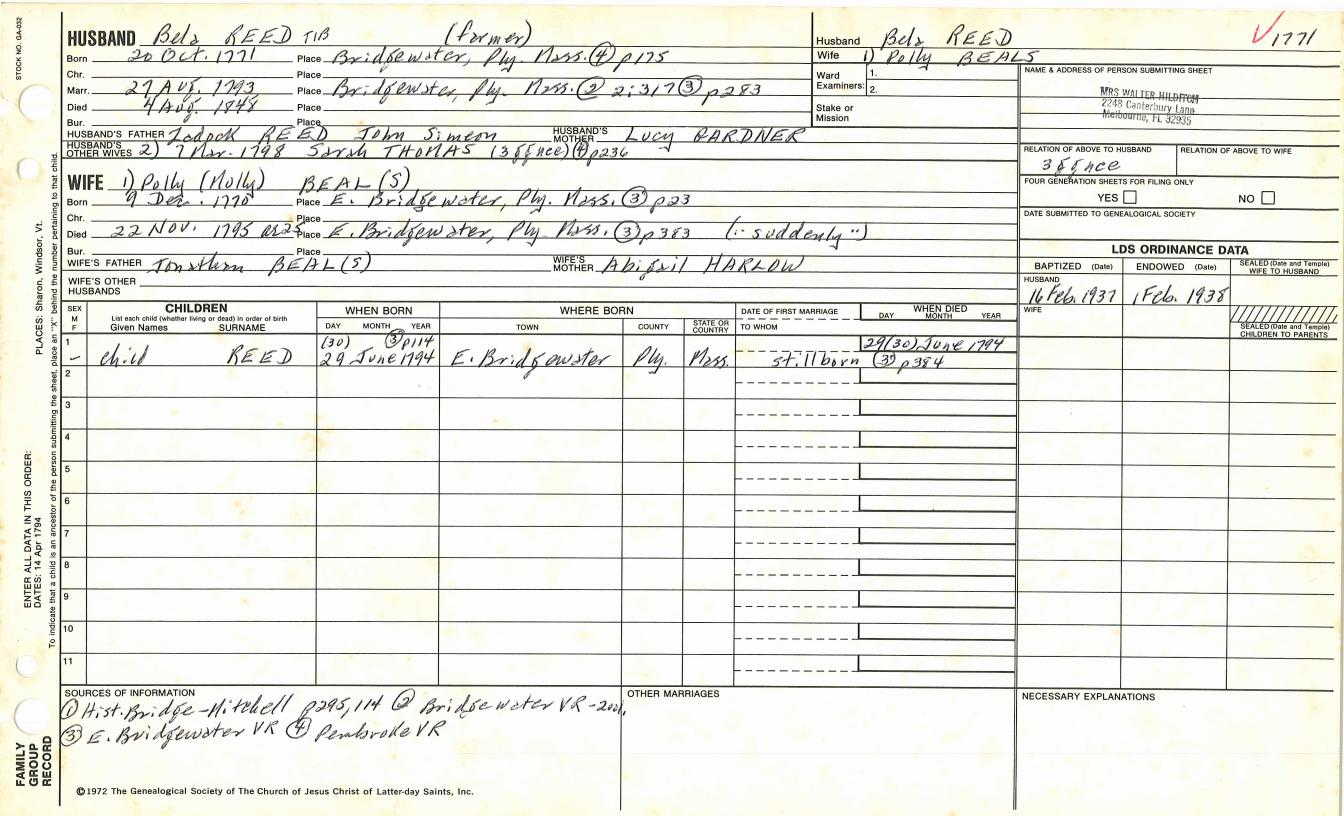 STOCK NO. GA-032
HUSBAND Bela REED TIB (farmer)
Born 20 Oct. 1771 Place Bridgewater, Ply. Mass. ④ p175
Chr. Place
Marr. 27 Aug. 1793 Place Bridgewater, Ply. Mass. ② 2:317 ③ p283
Died 4 Aug. 1848 Place
Bur. Place
HUSBAND'S FATHER Zadock REED John Simeon HUSBAND'S MOTHER Lucy GARDNER
HUSBAND'S OTHER WIVES 2) 7 Mar. 1798 Sarah THOMAS (3 ggnce) ④ p236
WIFE 1) Polly (Molly) BEAL(S)
Born 9 Dec. 1770 Place E. Bridgewater, Ply. Mass. ③ p23
Chr. Place
Died 22 Nov. 1795 ae 25 Place E. Bridgewater, Ply. Mass. ③ p383 ("suddenly")
Bur. Place
WIFE'S FATHER Jonathan BEAL(S) WIFE'S MOTHER Abigail HARLOW
WIFE'S OTHER HUSBANDS
Husband Bela REED √1771
Wife 1) Polly BEALS
Ward Examiners: 1. 2.
Stake or Mission
NAME & ADDRESS OF PERSON SUBMITTING SHEET
MRS WALTER HILDITCH
2248 Canterbury Lane
Melbourne, FL 32935
RELATION OF ABOVE TO HUSBAND RELATION OF ABOVE TO WIFE
3 ggnce
FOUR GENERATION SHEETS FOR FILING ONLY
YES NO
DATE SUBMITTED TO GENEALOGICAL SOCIETY
LDS ORDINANCE DATA
BAPTIZED (Date) ENDOWED (Date) SEALED (Date and Temple) WIFE TO HUSBAND
HUSBAND
16 Feb. 1937 1 Feb. 1938
WIFE
SEALED (Date and Temple) CHILDREN TO PARENTS
SEX M F CHILDREN WHEN BORN WHERE BORN DATE OF FIRST MARRIAGE WHEN DIED
List each child (whether living or dead) in order of birth
Given Names SURNAME DAY MONTH YEAR TOWN COUNTY STATE OR COUNTRY TO WHOM DAY MONTH YEAR
1 (30) ③ p114 29(30) June 1794
– child REED 29 June 1794 E. Bridgewater Ply. Mass. stillborn ③ p384
2
3
4
5
6
7
8
9
10
11
SOURCES OF INFORMATION OTHER MARRIAGES NECESSARY EXPLANATIONS
① Hist. Bridge - Mitchell p295, 114 ② Bridgewater VR - 2vol.
③ E. Bridgewater VR ④ Pembroke VR
©1972 The Genealogical Society of The Church of Jesus Christ of Latter-day Saints, Inc.
PLACES: Sharon, Windsor, Vt.
ENTER ALL DATA IN THIS ORDER:
DATES: 14 Apr 1794
To indicate that a child is an ancestor of the person submitting the sheet, place an "X" behind the number pertaining to that child.
FAMILY
GROUP
RECORD